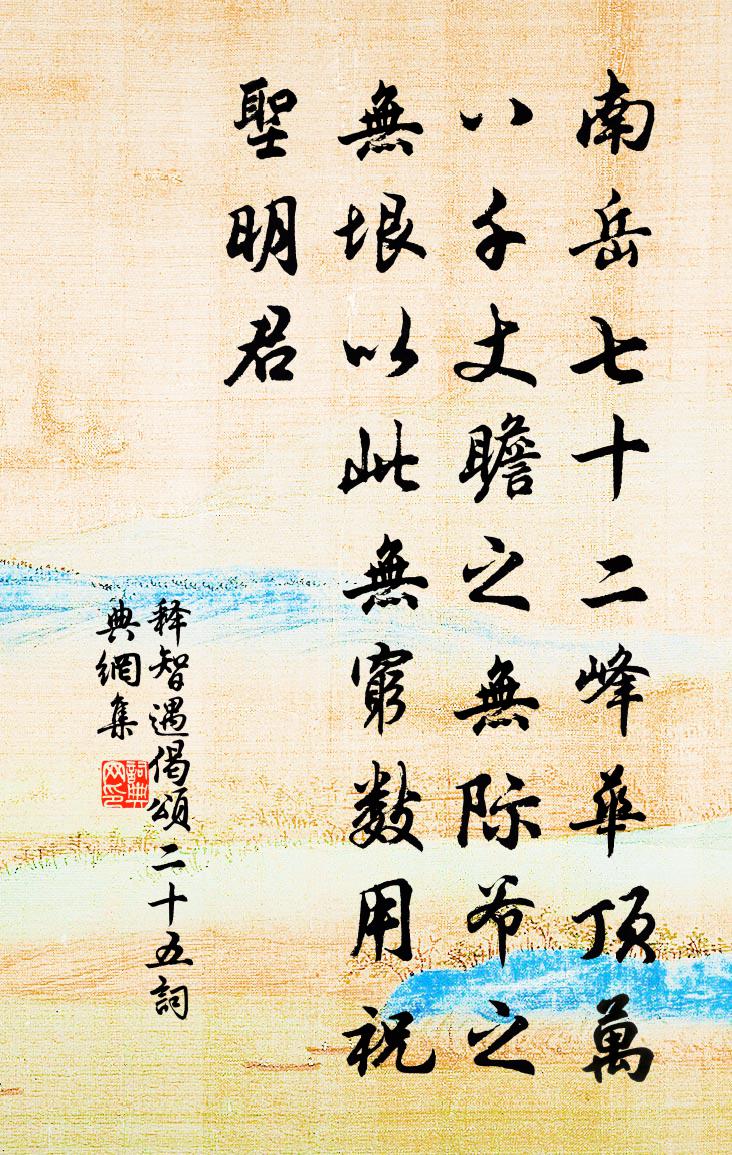 南岳七十二峰華頂萬
八千丈瞻之無际爷之
無垠以此無窮数用祝
聖明君
释智遇偈頌二十五詞
典網集
詞典网印